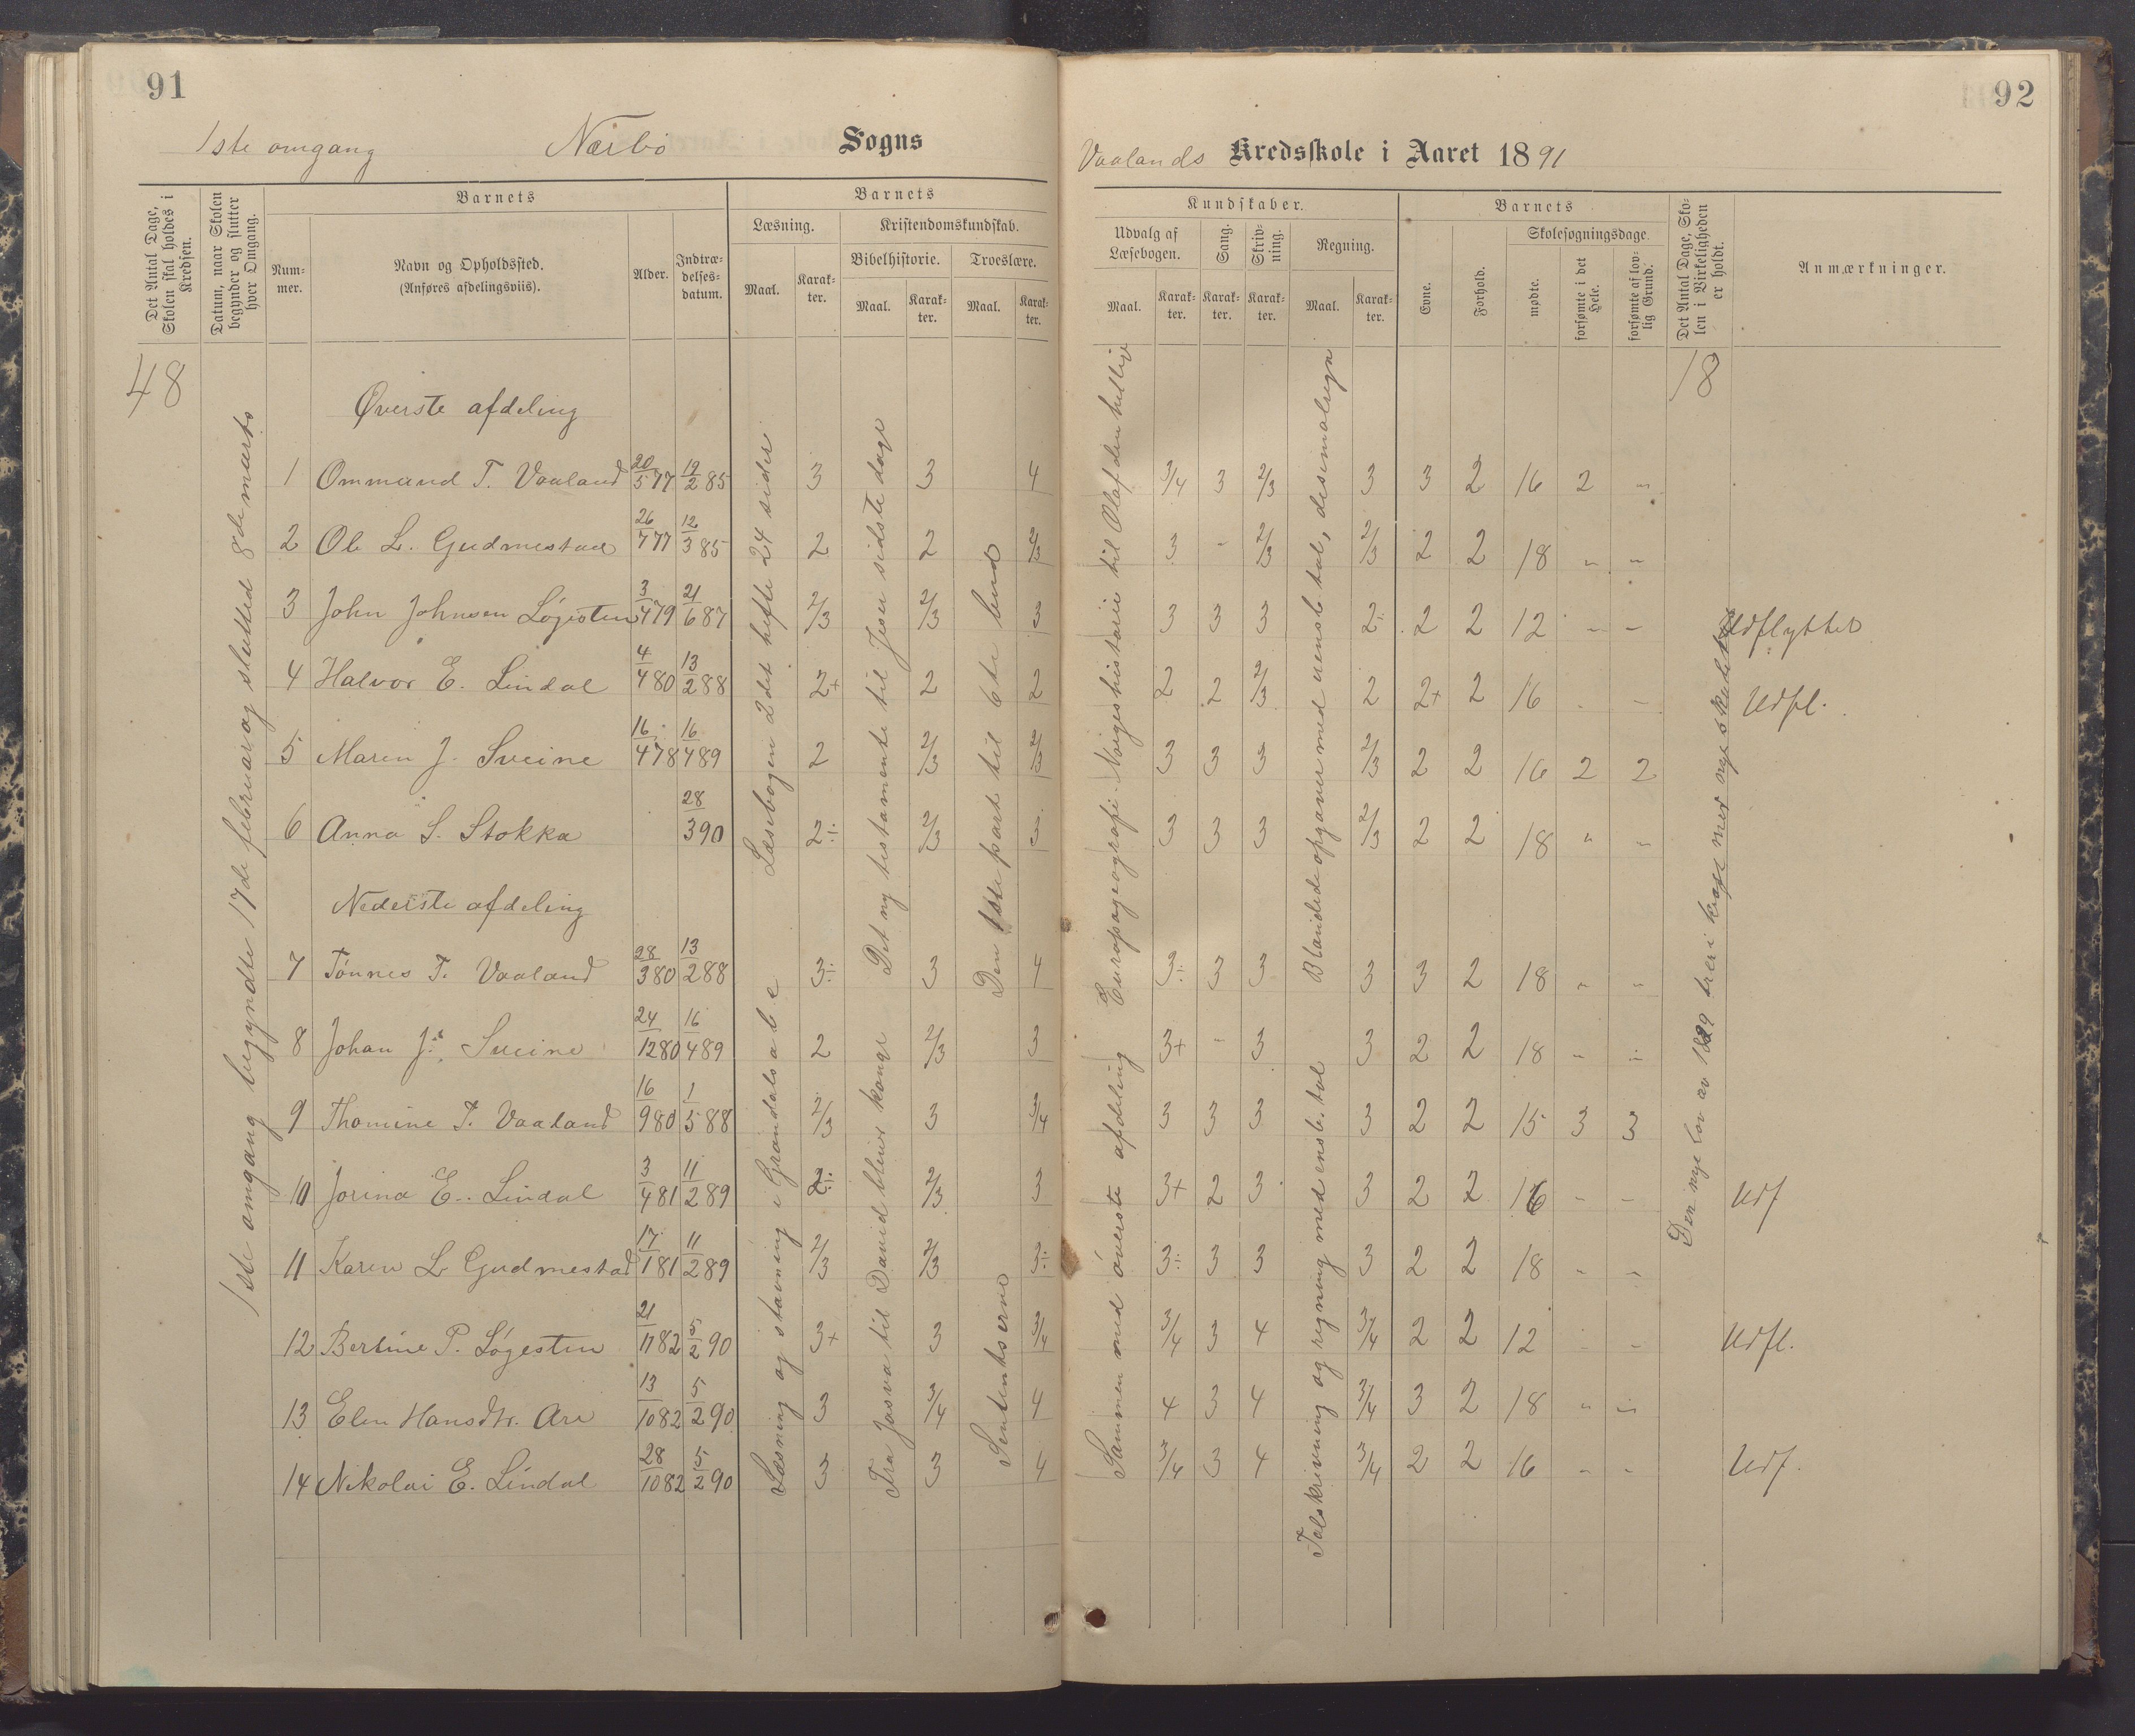 91
92
1ste omgang Nærbø Sogns
Vaalands Kredsskole i Aaret 1891
Det Antal Dage, Skolen skal holdes i Kredsen.
Datum, naar Skolen begynder og slutter hver Omgang.
Barnets
Nummer.
Navn og Opholdssted. (Anføres afdelingsviis).
Alder.
Indtrædelsesdatum.
Barnets
Læsning.
Maal. Karakter.
Kristendomskundskab.
Bibelhistorie. Troeslære.
Maal. Karakter. Maal. Karakter.
Kundskaber.
Udvalg af Læsebogen. Sang. Skrivning. Regning.
Maal. Karakter. Karakter. Karakter. Maal. Karakter.
Barnets
Evne. Forhold.
Skolesøgningsdage.
mødte. forsømte i det Hele. forsømte af lovlig Grund.
Det Antal Dage, Skolen i Virkeligheden er holdt.
Anmærkninger.
48
18
1ste omgang begyndte 17de februar og slutted 8de marts
Øverste afdeling
Læsebogen 2det hefte 24 sider
Det ny testamente til Jesu sidste dage
Den 1ste part til 6te bud
Europageografi. Norgeshistorie til Olaf den hellige
Blandede opgaver med uensb. tal, desimalregn
1 Ommund T. Vaaland 20/5 77 12/2 85 3 3 4 3/4 3 2/3 3 3 2 16 2 "
2 Ole L. Gudmestad 26/7 77 12/3 85 2 2 2/3 3 - 2/3 2/3 2 2 18 " "
3 John Johnsen Løgesten 3/4 79 21/6 87 2/3 2/3 3 3 3 3 2÷ 2 2 12 - - Udflyttet
4 Halvor E. Lindal 4/4 80 13/2 88 2+ 2 2 2 2 2/3 2 2+ 2 16 - - Udfl.
5 Maren J. Sveine 16/4 78 16/4 89 2 2/3 2/3 3 3 3 2/3 2 2 16 2 2
6 Anna S. Stokka 28/3 90 2÷ 2/3 3 3 3 3 2/3 2 2 18 " "
Nederste afdeling
Læsning og stavning i Grøndals abc
Fra Josva til David bliver konge
Sentenkserne
Sammen med øverste afdeling
Talskrivning og regning med ensb. tal
7 Tønnes T. Vaaland 28/3 80 13/2 88 3÷ 3 4 3÷ 3 3 3 3 2 18 " "
8 Johan J. Sveine 24/12 80 16/4 89 2 2/3 3 3+ - 3 3 2 2 18 " "
9 Thomine T. Vaaland 16/9 80 1/5 88 2/3 3 3/4 3 3 3 3 2 2 15 3 3
10 Jorina E. Lindal 3/4 81 11/2 89 2÷ 2/3 3 3+ 2 3 3 2 2 16 " - Udf
11 Karen L Gudmestad 17/1 81 11/2 89 2/3 2/3 3÷ 3÷ 3 3 3 2 2 18 " "
12 Bertine P. Løgesten 21/11 82 5/2 90 3+ 3 3/4 3/4 3 4 3/4 2 2 12 - - Udfl.
13 Elen Hansdtr. Are 13/10 82 5/2 90 3 3/4 4 4 3 4 3/4 3 2 18 " "
14 Nikolai E. Lindal 28/10 82 5/2 90 3 3 4 3/4 3 4 3/4 2 2 16 " - Udf.
Den nye lov av 1889 træ i kraft med nye skolekredse